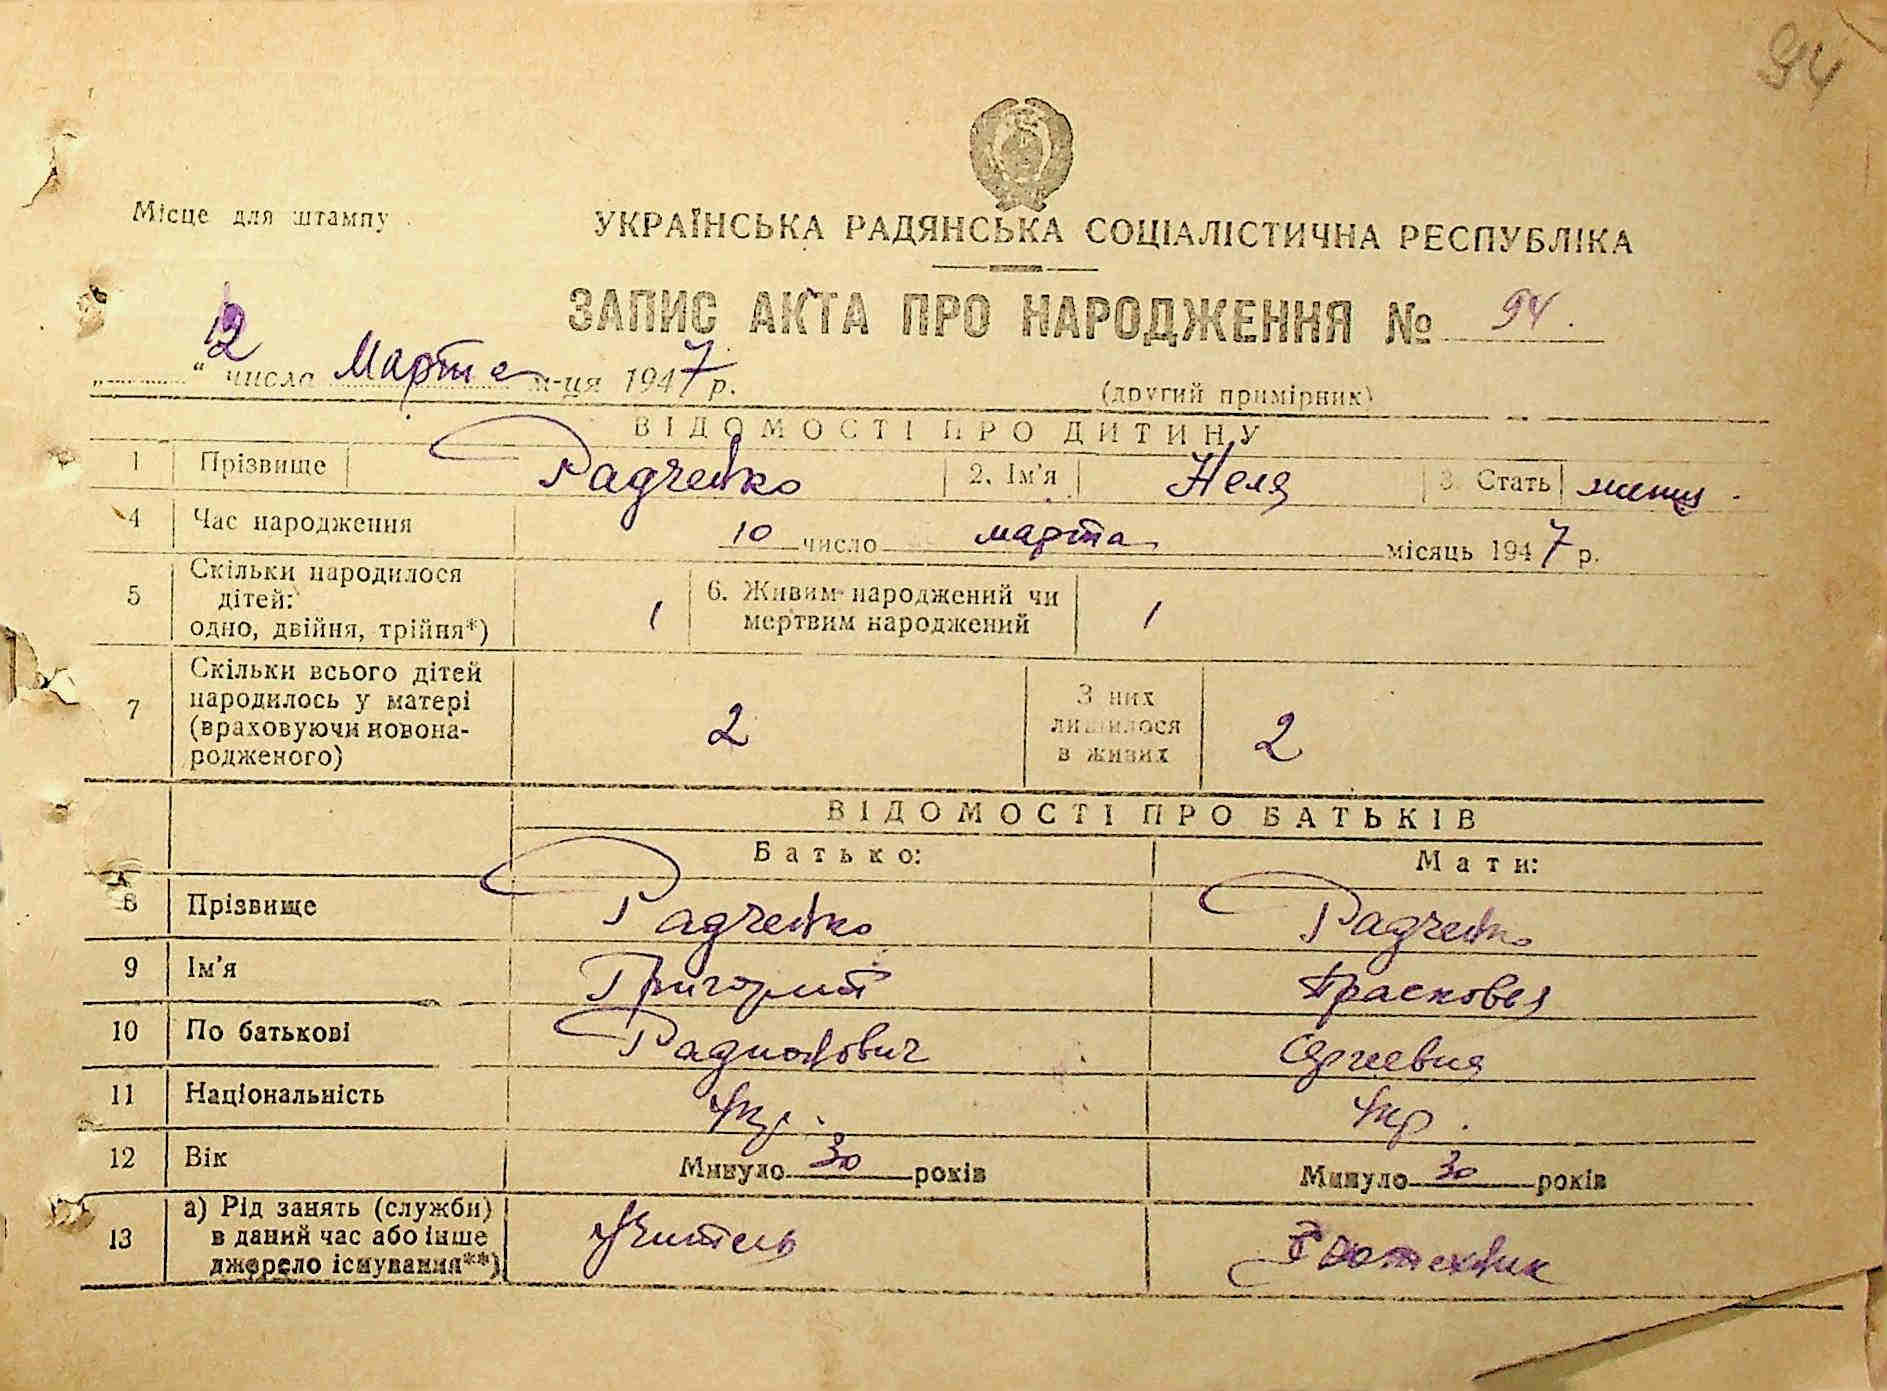 94
Місце для штампу
УКРАЇНСЬКА РАДЯНСЬКА СОЦІАЛІСТИЧНА РЕСПУБЛІКА
ЗАПИС АКТА ПРО НАРОДЖЕННЯ № 94.
"12" числа Марта м-ця 1947 р.
(другий примірник)
ВІДОМОСТІ ПРО ДИТИНУ
1 Прізвище Радченко 2. Ім'я Неля 3. Стать женщ.
4 Час народження 10 число марта місяць 1947 р.
5 Скільки народилося дітей: одно, двійня, трійня*) 1 6. Живим народжений чи мертвим народжений 1
7 Скільки всього дітей народилось у матері (враховуючи новонародженого) 2 З них лишилося в живих 2
ВІДОМОСТІ ПРО БАТЬКІВ
Батько: Мати:
8 Прізвище Радченко Радченко
9 Ім'я Григорий Прасковья
10 По батькові Радионович Сергеевна
11 Національність Укр. Укр.
12 Вік Минуло 30 років Минуло 30 років
13 а) Рід занять (служби) в даний час або інше джерело існування**) Учитель Зоотехник